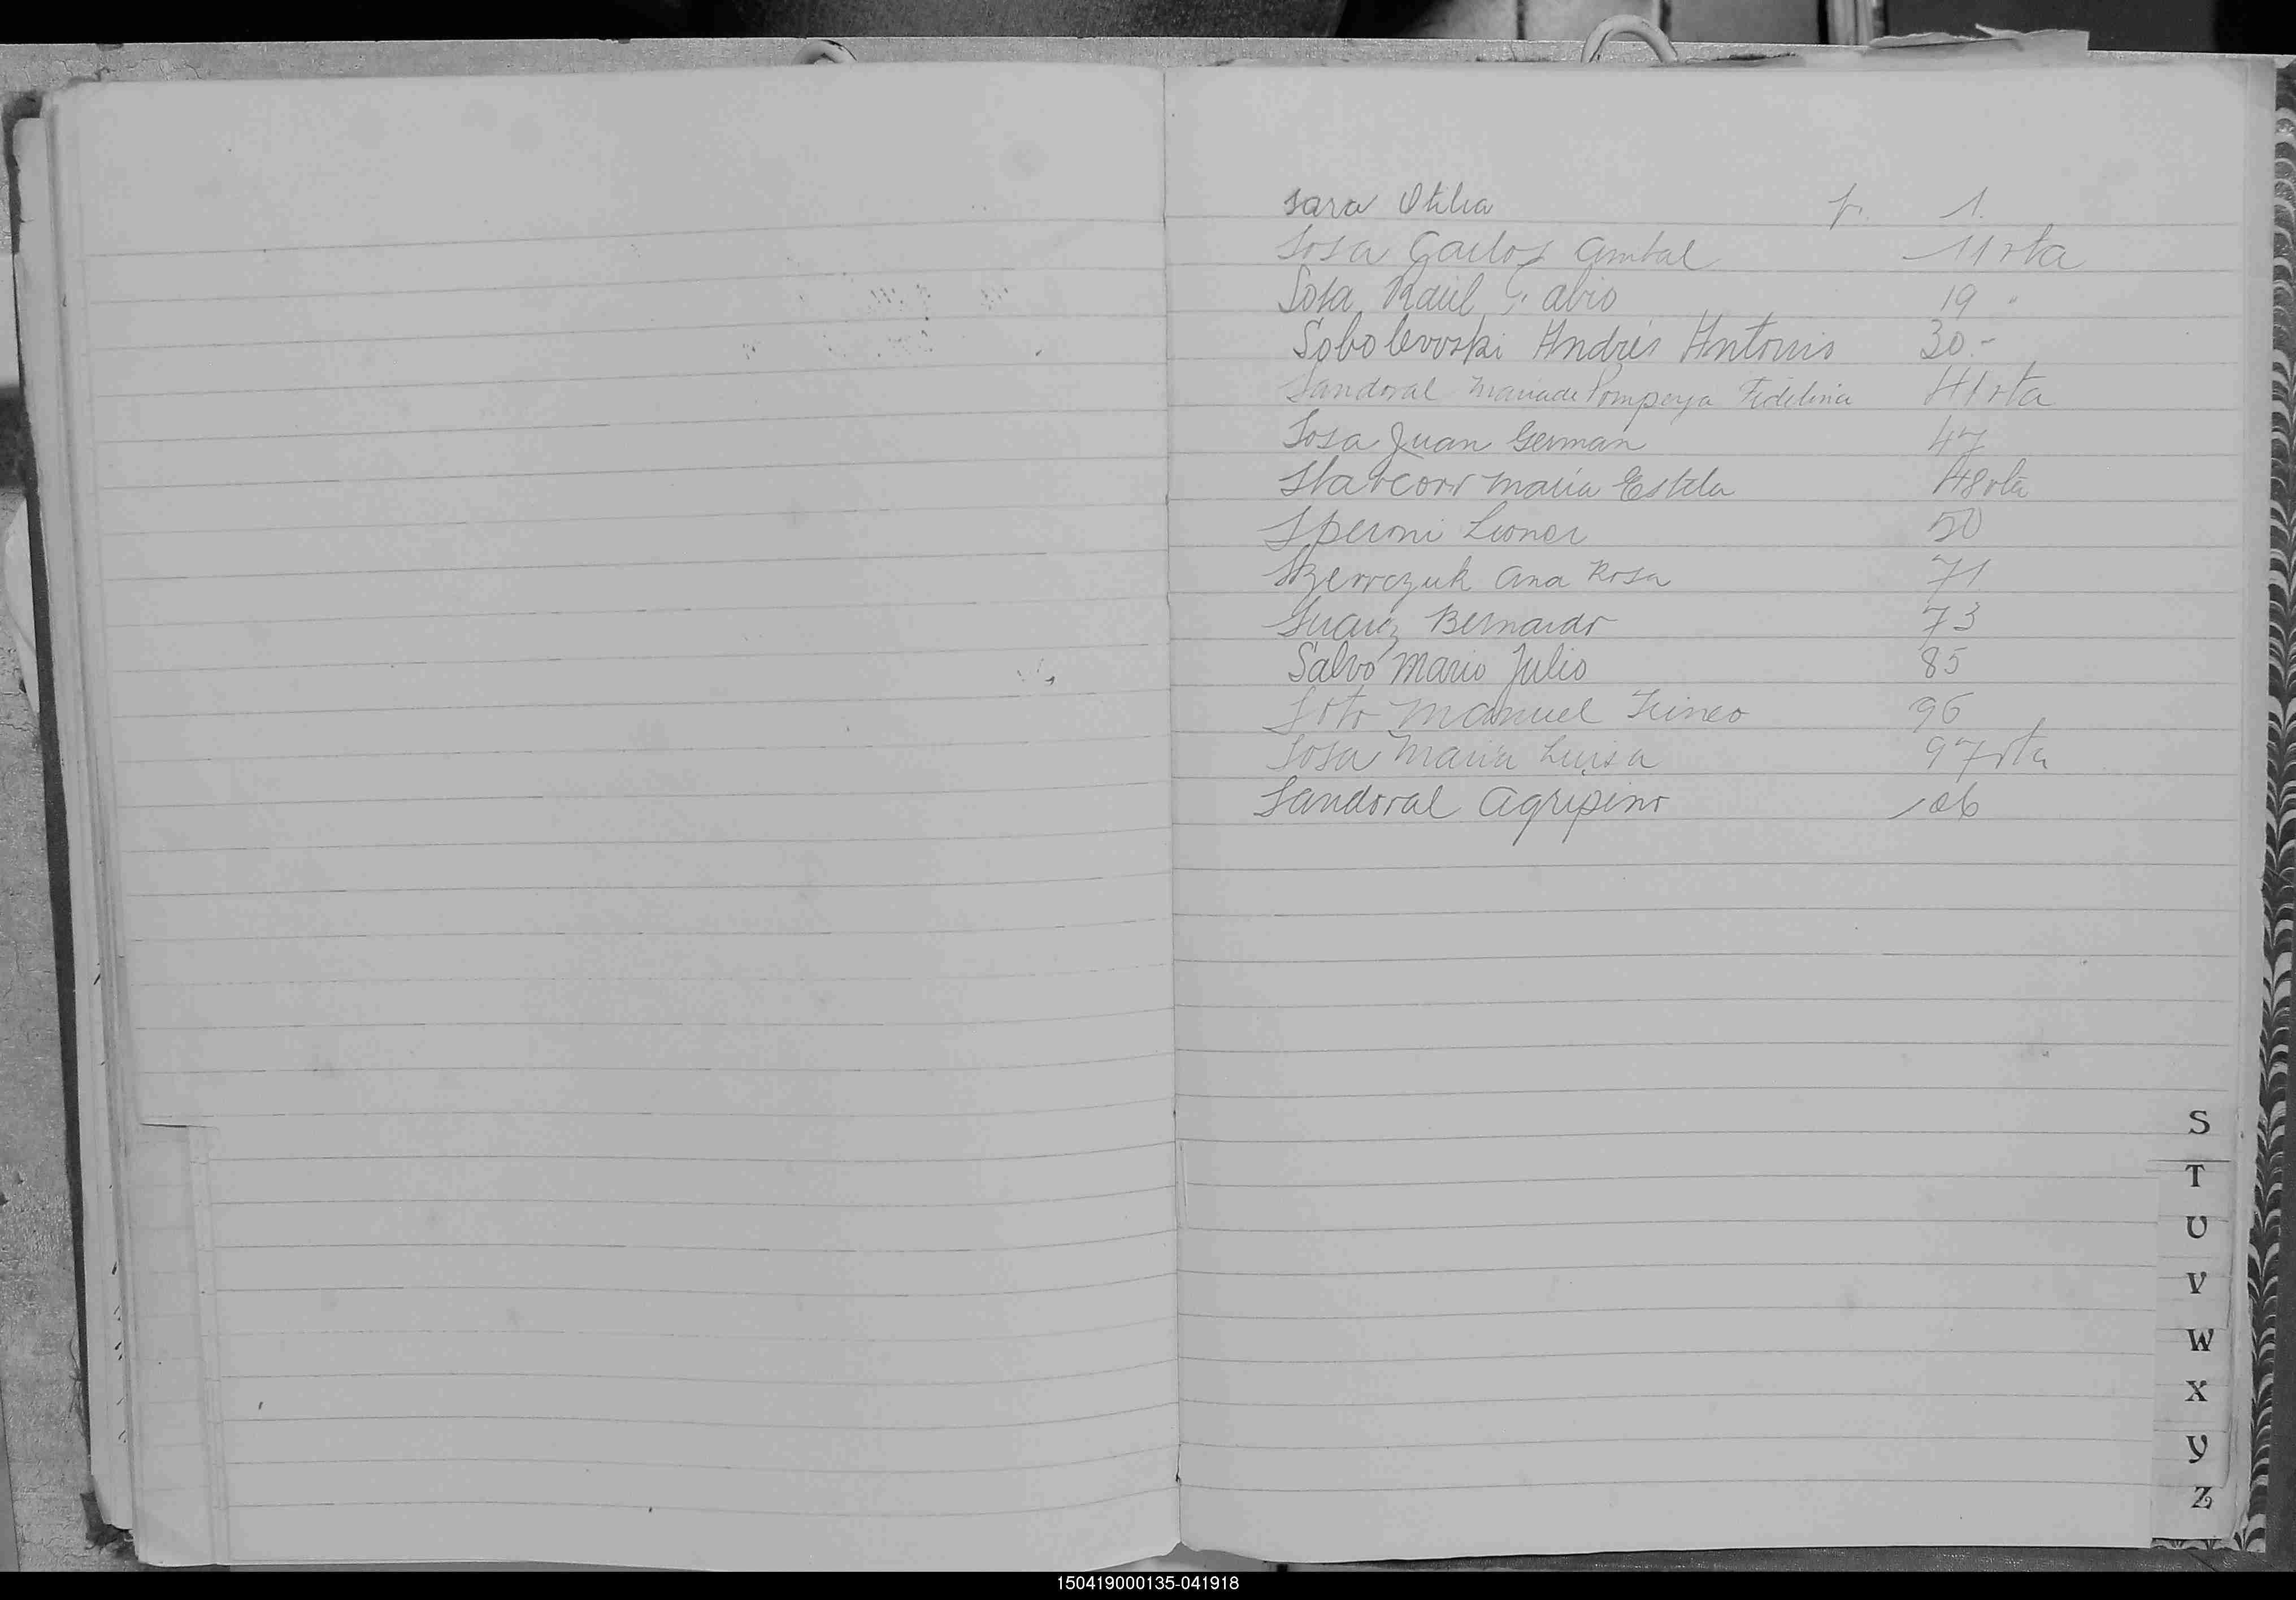 Sara Otilia f. 1.
Sosa Carlos Anibal 11 vta
Sosa Raúl Fabio 19 "
Sobolevoski Andrés Antonio 30.-
Sandoval Maria de Pompeya Fidelina 41 vta
Sosa Juan German 47
Maria Estela 48 vta
Speroni Leonor 50
Ana Rosa 71
Suarez Bernardo 73
Salvo Mario Julio 85
Soto Manuel Irineo 96
Sosa Maria Luisa 97 vta
Sandoval Agripino 106
S
T
U
V
W
X
Y
Z
150419000135-041918